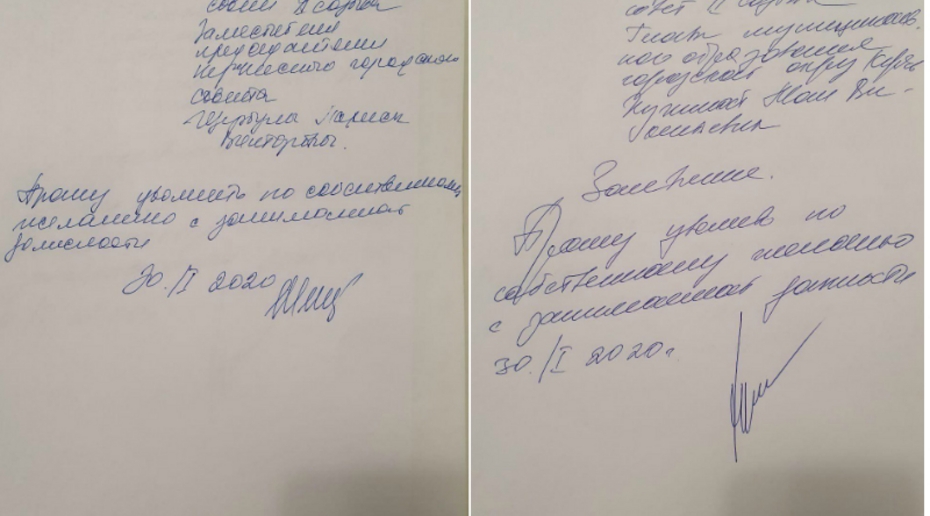 совет II созыва
Заместителя
председателя
Керченского городского
совета
Ларисы
Викторовны.
Прошу уволить по собственному
желанию с занимаемой
должности
30./I 2020
совет II созыва
Глава муниципаль
ного образования
городской округ Керчь
Заявление.
Прошу уволить по
собственному желанию
с занимаемой должности
30./I 2020г